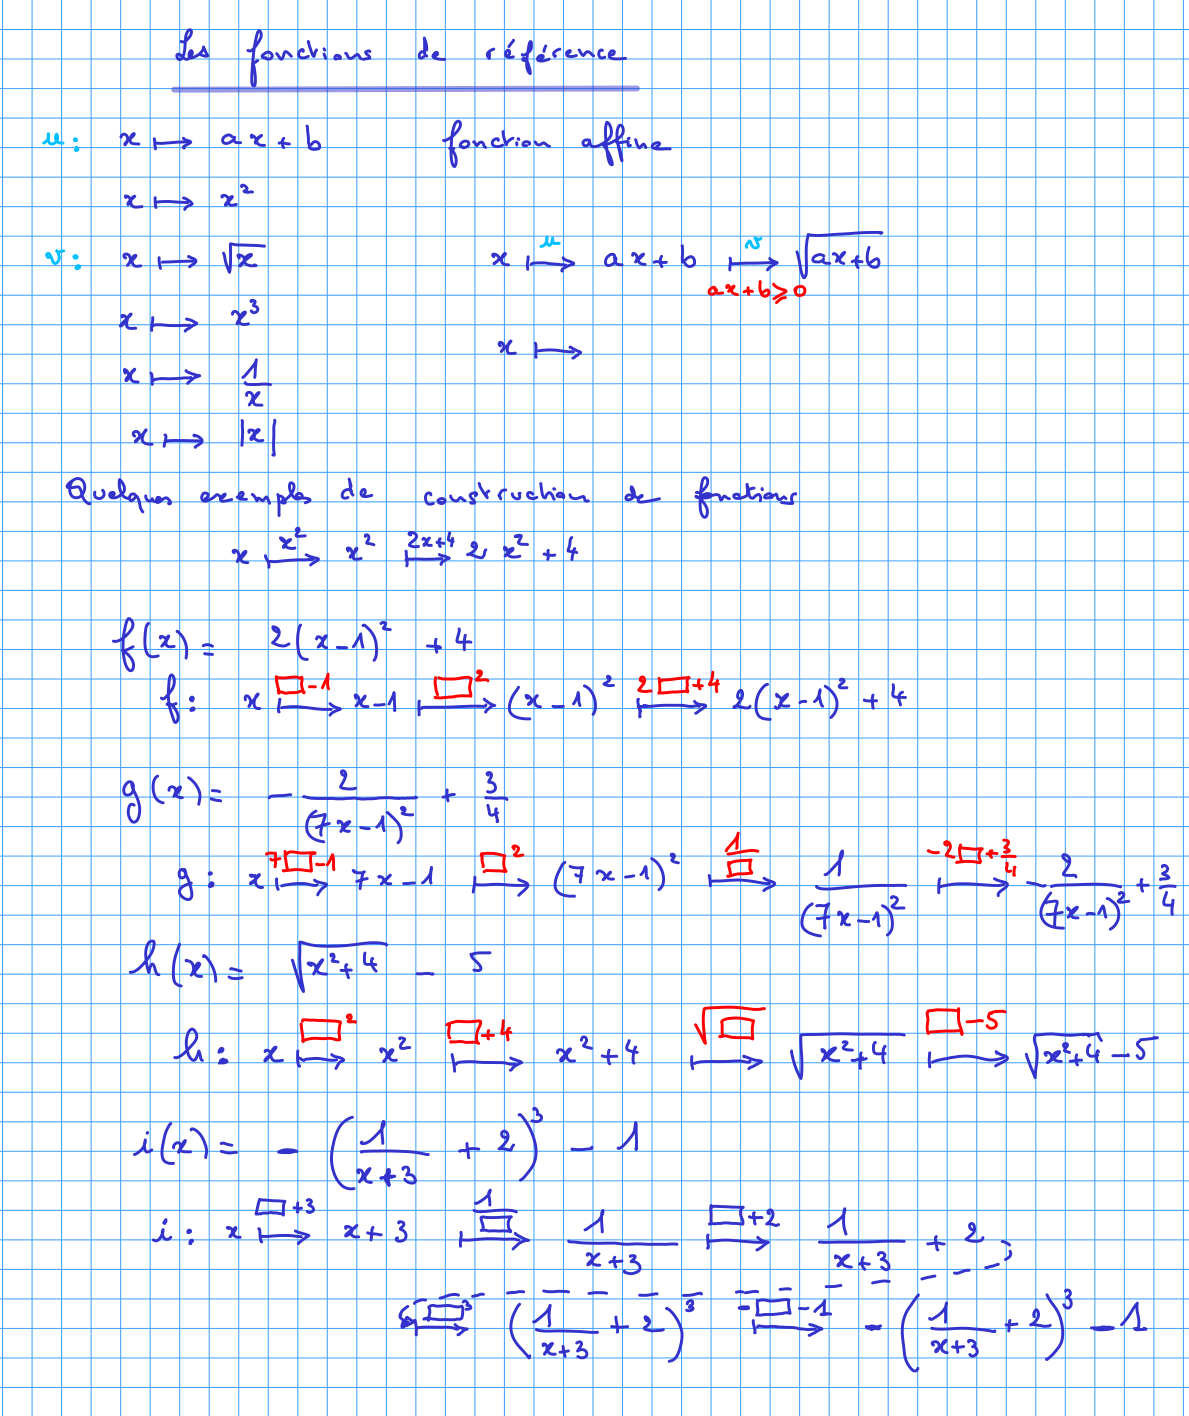 Les fonctions de référence
u : x ⟼ ax + b fonction affine
x ⟼ x²
v : x ⟼ √x x ⟼ᵘ ax + b ⟼ᵛ √(ax+b)
ax + b ⩾ 0
x ⟼ x³
x ⟼
x ⟼ 1/x
x ⟼ |x|
Quelques exemples de construction de fonctions
x² 2x+4
x ⟼ x² ⟼ 2 x² + 4
f(x) = 2(x-1)² + 4
□-1 □² 2□+4
f : x ⟼ x-1 ⟼ (x-1)² ⟼ 2(x-1)² + 4
g(x) = - 2/(7x-1)² + 3/4
7□-1 □² 1/□ -2□+3/4
g : x ⟼ 7x-1 ⟼ (7x-1)² ⟼ 1/(7x-1)² ⟼ -2/(7x-1)² + 3/4
h(x) = √(x²+4) - 5
□² □+4 √□ □-5
h : x ⟼ x² ⟼ x²+4 ⟼ √(x²+4) ⟼ √(x²+4) - 5
i(x) = - (1/(x+3) + 2)³ - 1
□+3 1/□ □+2
i : x ⟼ x+3 ⟼ 1/(x+3) ⟼ 1/(x+3) + 2
□³ -□-1
⟼ (1/(x+3) + 2)³ ⟼ - (1/(x+3) + 2)³ - 1